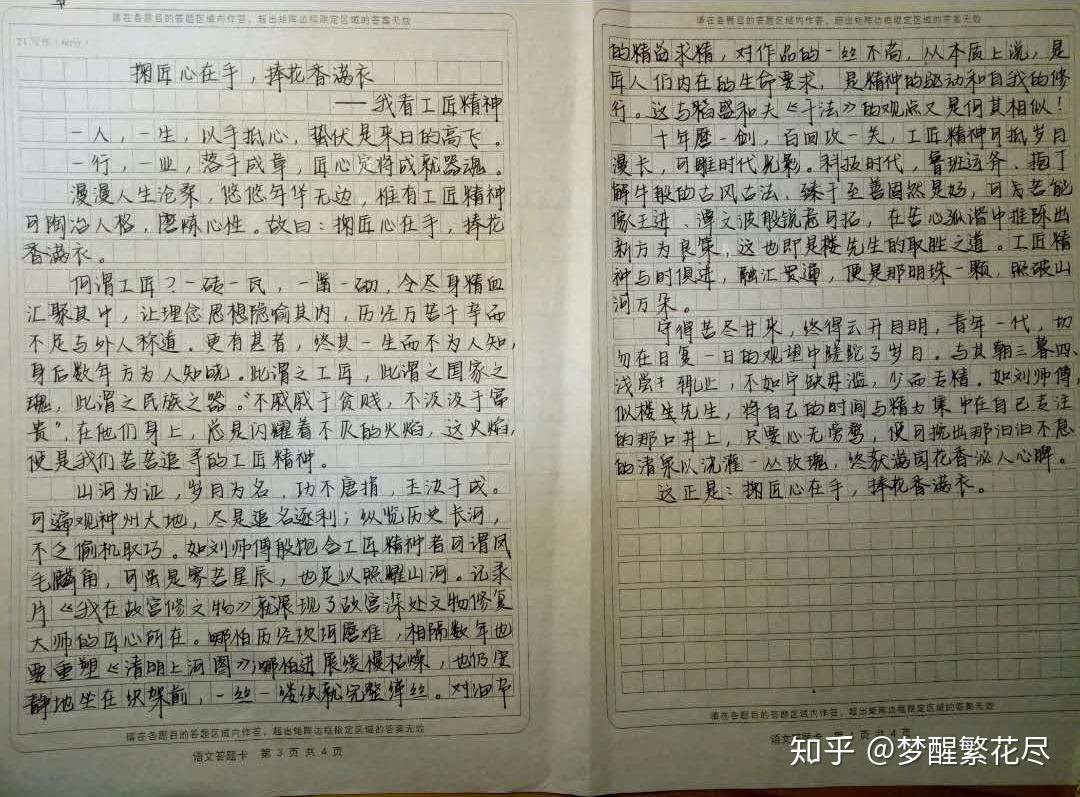 请在各题目的答题区域内作答，超出矩阵边框限定区域的答案无效
21.写作（60分）
掬匠心在手，捧花香满衣
——我看工匠精神
一人，一生，以手抵心，蛰伏是来日的高飞。
一行，一业，落手成章，匠心定将成就器魂。
漫漫人生沧桑，悠悠年华无边，惟有工匠精神
可陶冶人格，磨炼心性。故曰：掬匠心在手，捧花
香满衣。
何谓工匠？一砖一瓦，一凿一砌，令尽身精血
汇聚其中，让理念思想隐喻其内，历经万苦千辛而
不足与外人称道。更有甚者，终其一生而不为人知，
身后数年方为人知晓。此谓之工匠，此谓之国家之
瑰，此谓之民族之器。“不戚戚于贫贱，不汲汲于富
贵”，在他们身上，总是闪耀着不灭的火焰，这火焰，
便是我们苦苦追寻的工匠精神。
山河为证，岁月为名，功不唐捐，玉汝于成。
可遍观神州大地，尽是追名逐利；纵览历史长河，
不乏偷机取巧。如刘师傅般饱含工匠精神者可谓凤
毛麟角，可虽是寥若星辰，也足以照耀山河。记录
片《我在故宫修文物》就展现了故宫深处文物修复
大师的匠心所在。哪怕历经坎坷磨难，相隔数年也
要重塑《清明上河图》；哪怕进展缓慢枯燥，也仍安
静地坐在织架前，一丝一缕织就完整缂丝。对细节
请在各题目的答题区域内作答，超出矩阵边框限定区域的答案无效
语文答题卡 第 3 页 共 4 页
请在各题目的答题区域内作答，超出矩阵边框限定区域的答案无效
的精益求精，对作品的一丝不苟，从本质上说，是
匠人们内在的生命要求，是精神的驱动和自我的修
行。这与稻盛和夫《干法》的观点又是何其相似！
十年磨一剑，百回攻一关，工匠精神可抵岁月
漫长，可雕时代光影。科技时代，鲁班运斧、庖丁
解牛般的古风古法，臻于至善固然是好，可若能
像王进、谭文波般锐意可拓，在苦心孤诣中推陈出
新方为良策，这也即是楼先生的取胜之道。工匠精
神与时俱进，融汇贯通，便是那明珠一颗，照破山
河万朵。
守得苦尽甘来，终得云开月明，青年一代，切
勿在日复一日的观望中蹉跎了岁月。与其朝三暮四、
浅尝辄止，不如宁缺毋滥，少而专精。如刘师傅，
似楼生先生，将自己的时间与精力集中在自己专注
的那口井上，只要心无旁骛，便可挖出那汩汩不息
的清泉以浇灌一丛玫瑰，终获满园花香泌人心脾。
这正是：掬匠心在手，捧花香满衣。
请在各题目的答题区域内作答，超出矩阵边框限定区域的答案无效
语文答题卡 第 4 页 共 4 页
知乎 @梦醒繁花尽